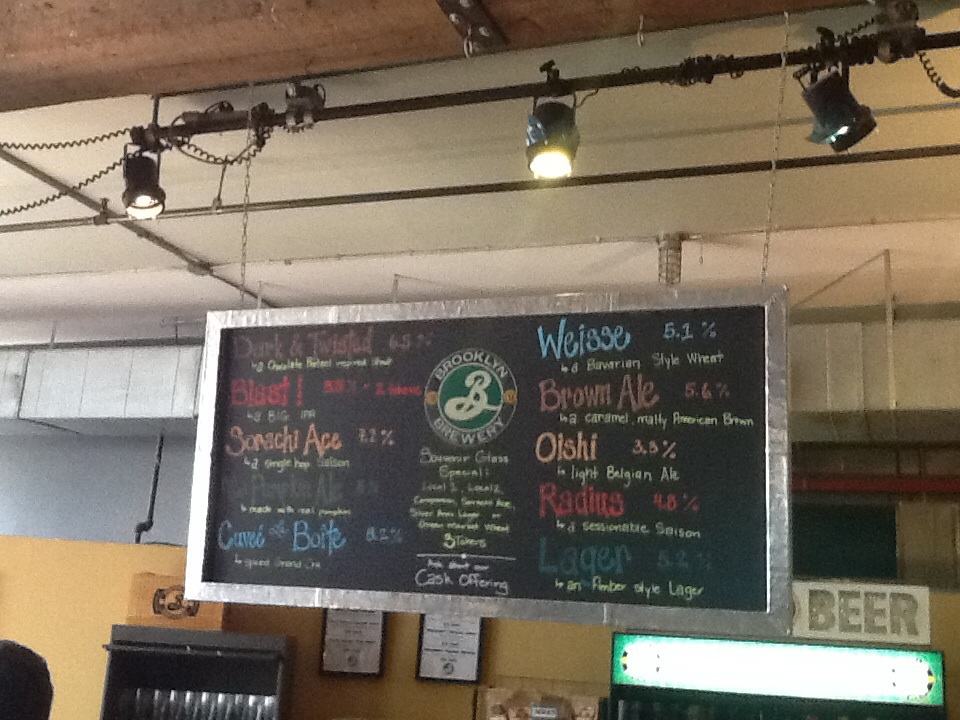 Dark & Twisted 6.5 %
↳ a Chocolate Pretzel inspired Stout
Blast!
↳ a BIG IPA
Sorachi Ace 7.2 %
↳ a single hop Saison
Ale
↳ made with real pumpkin
Cuveé de la Boîte 8.2 %
↳ Spiced Grand Cru
BROOKLYN
B
BREWERY
Souvenir Glass
Special:
Local 1, Local 2,
Sorachi Ace,
Green Market Wheat
3 Tokens
Ask about our
Cash Offering
Weisse 5.1 %
↳ a Bavarian Style Wheat
Brown Ale 5.6 %
↳ a caramel, malty American Brown
Oishi 3.3 %
↳ light Belgian Ale
Radius 4.8 %
↳ a sessionable Saison
Lager 5.2 %
↳ an Amber style Lager
BEER